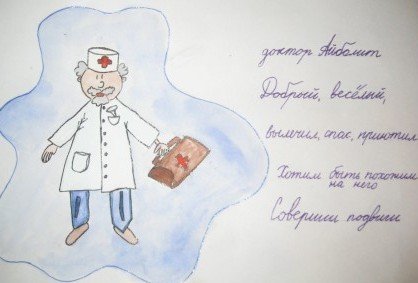 доктор Айболит
Добрый, весёлый,
вылечил, спас, приютил
Хотим быть похожими
на него
Соверши подвиги